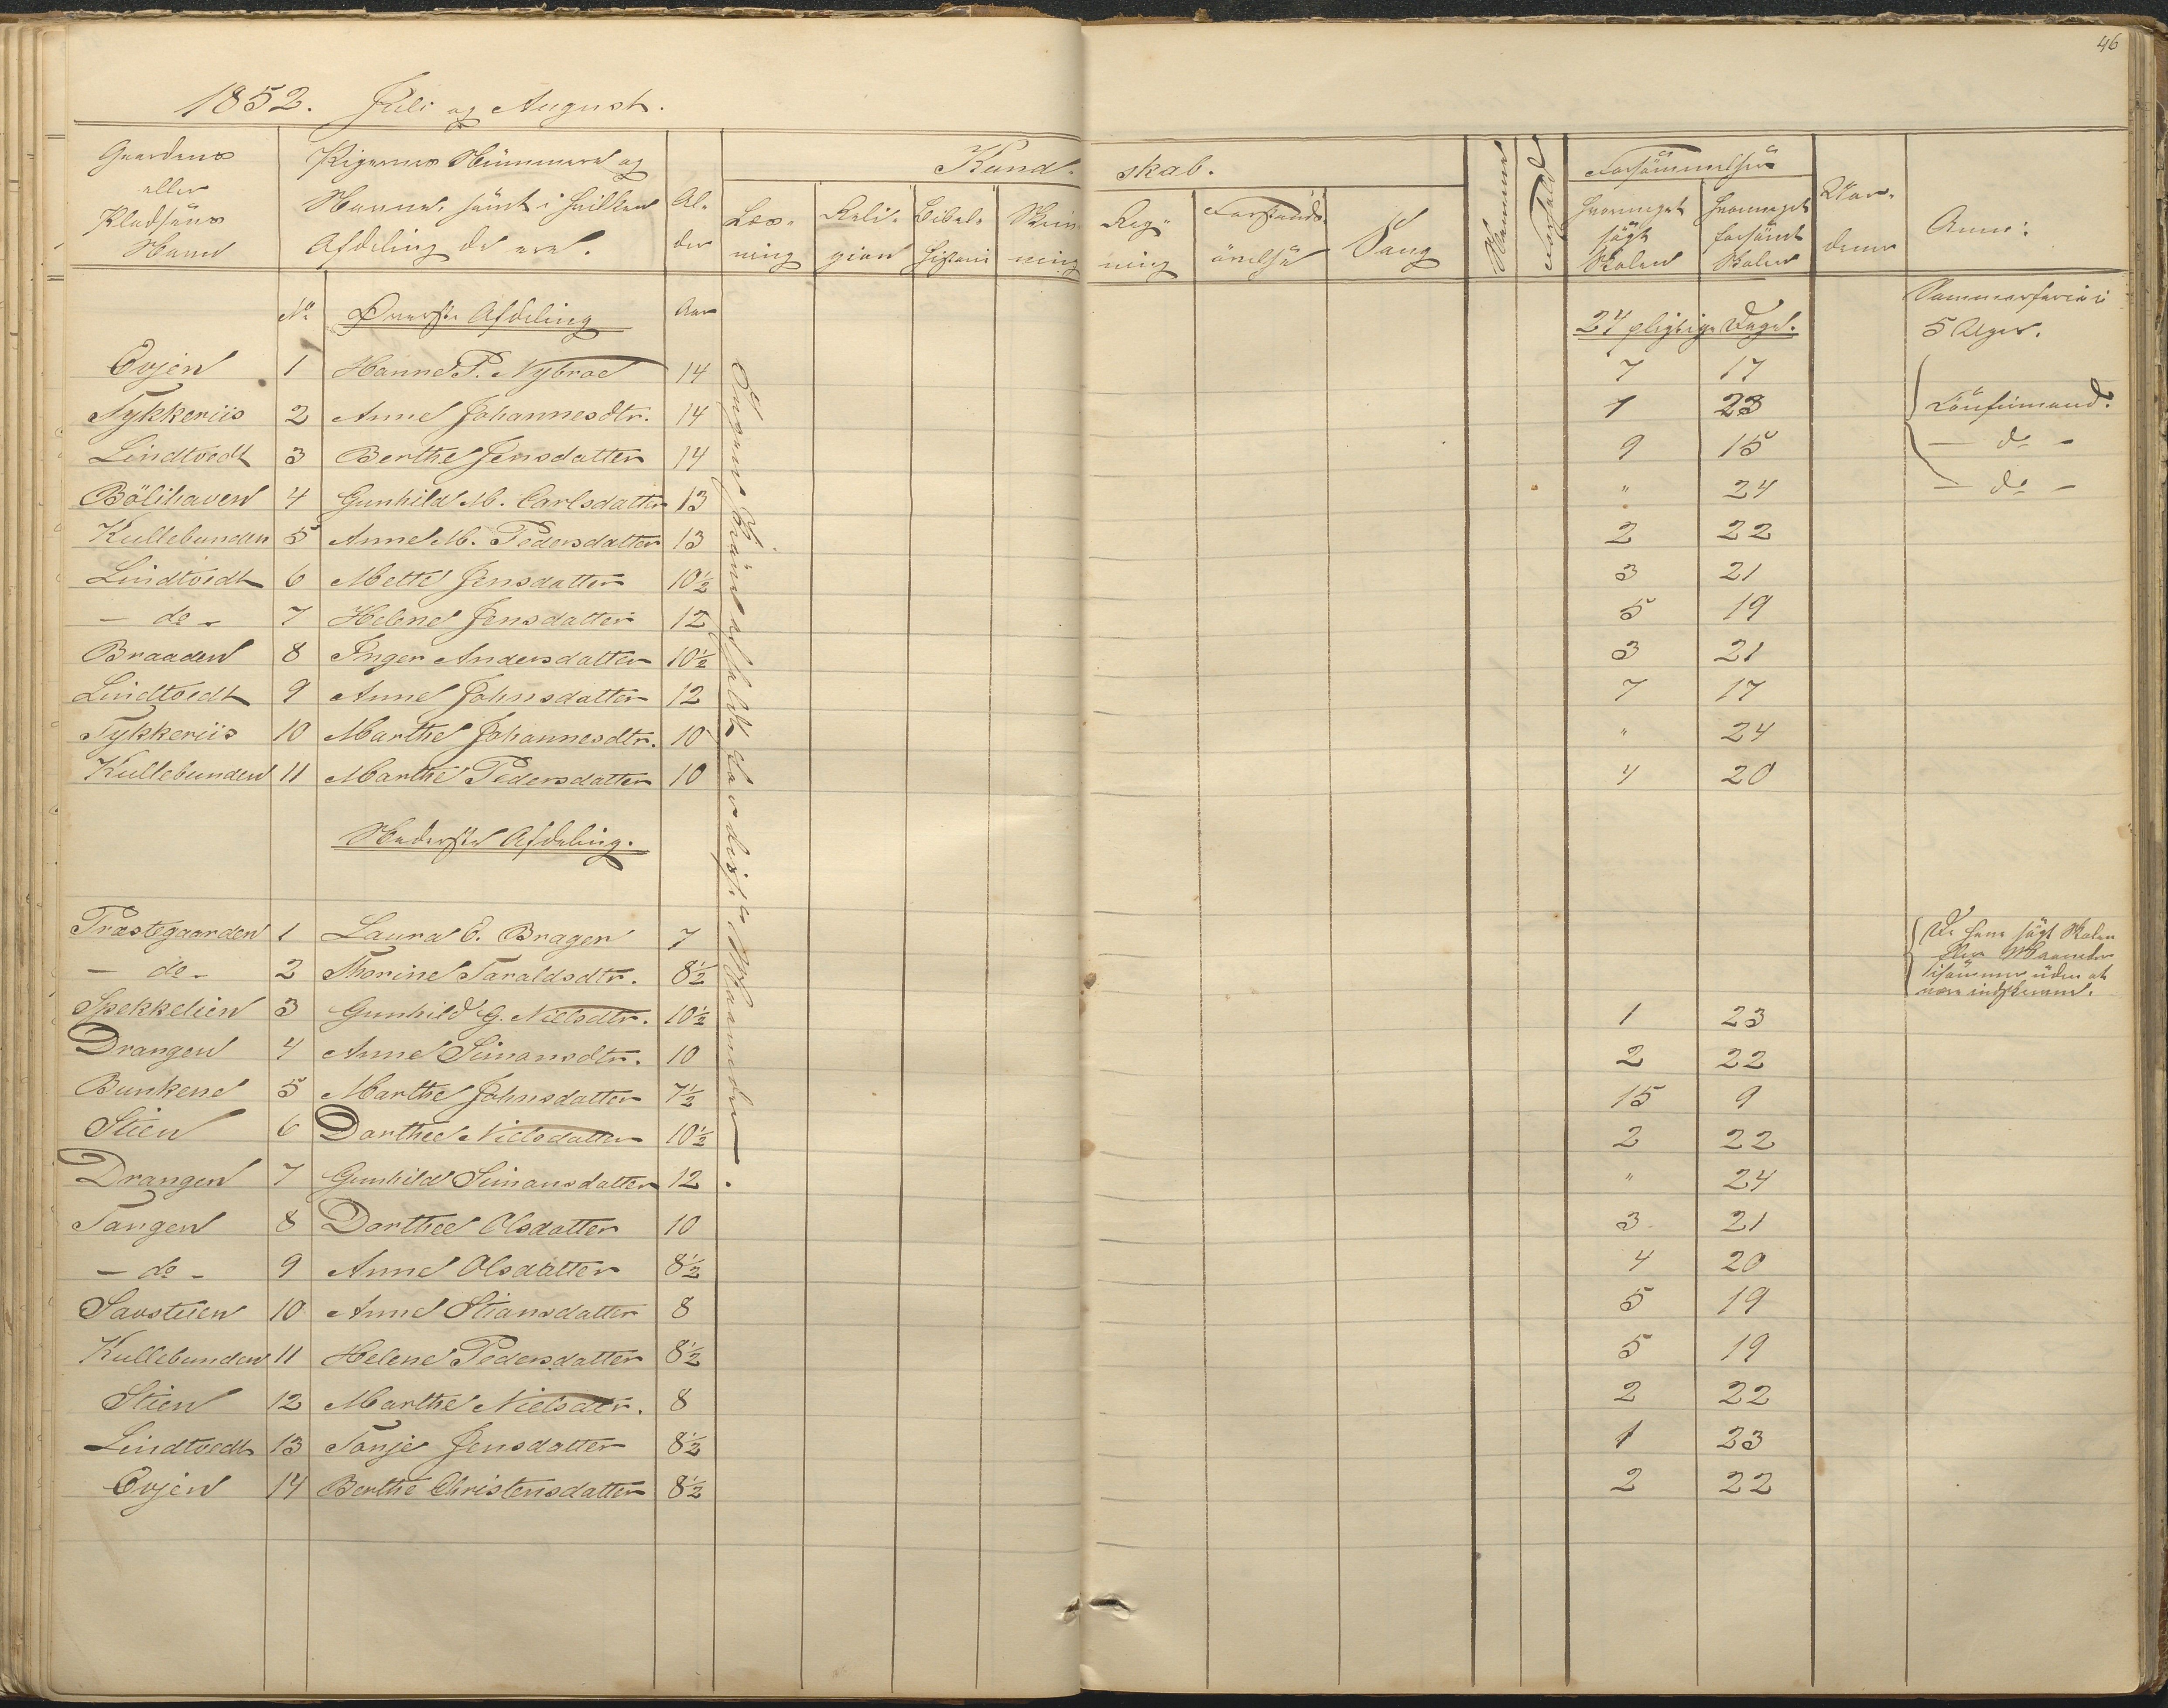 46
1852. Juli og August.
Gaardens eller Pladsens Navn | Pigernes Nummere og Navne, samt i hvilken Afdeling de ere. | Alder | Kundskab. | Forsömmelser | Anm:
Læsning | Religion | Bibelhistorie | Skrivning | Regning | Forstandsövelse | Sang | Nemme | Forhold | hvormeget sögt Skolen | hvormeget forsömt Skolen
No | Øverste Afdeling | Aar | 24 pligtige Dage. | Sommerferie i 5 Uger.
Evjen 1 Hanne P. Nybroe 14 7 17
Tykkeriis 2 Anne Johannesdtr. 14 1 23 Confirmand.
Lindtvedt 3 Berthe Jensdatter 14 9 15 - do -
Bölihaven 4 Gunhild M. Carlsdatter 13 " 24 - do -
Kullebunden 5 Anne M. Pedersdatter 13 2 22
Lindtvedt 6 Mette Jensdatter 10½ 3 21
- do - 7 Helene Jensdatter 12 5 19
Braaden 8 Inger Andersdatter 10½ 3 21
Lindtvedt 9 Anne Johnsdatter 12 7 17
Tykkeriis 10 Marthe Johannesdtr. 10 " 24
Kullebunden 11 Marthe Pedersdatter 10 4 20
Ingen Pröve afholdt for disse Maaneder.
Nederste Afdeling.
Præstegaarden 1 Laura E. Brager 7 De have sögt Skolen
- do - 2 Thorine Taraldsdtr. 8½ flere Maaneder
isommer uden at
være indskrevne.
Spekkelien 3 Gunhild G. Nielsdtr. 10½ 1 23
Drangen 4 Anne Simonsdtr. 10 2 22
Bunkene 5 Marthe Johnsdatter 7½ 15 9
Stien 6 Dorthee Nielsdatter 10½ 2 22
Drangen 7 Gunhild Simonsdatter 12 " 24
Tangen 8 Dorthee Olsdatter 10 3 21
- do - 9 Anne Olsdatter 8½ 4 20
Savstuen 10 Anne Stiansdatter 8 5 19
Kullebunden 11 Helene Pedersdatter 8½ 5 19
Stien 12 Marthe Nielsdtr. 8 2 22
Lindtvedt 13 Tonje Jensdatter 8½ 1 23
Evjen 14 Berthe Christensdatter 8½ 2 22